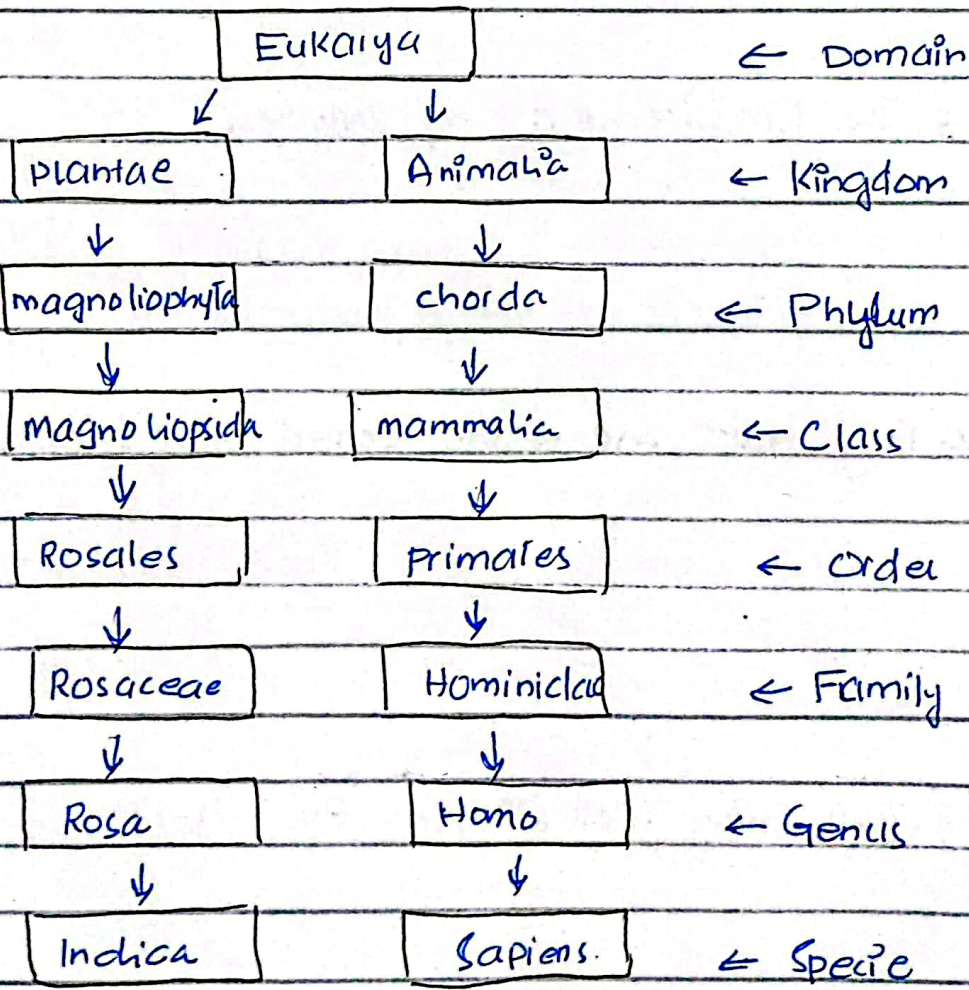 Eukarya ← Domain
Plantae Animalia ← Kingdom
magnoliophyta chorda ← Phylum
magnoliopsida mammalia ← Class
Rosales primates ← Order
Rosaceae Hominidae ← Family
Rosa Homo ← Genus
Indica Sapiens. ← Specie